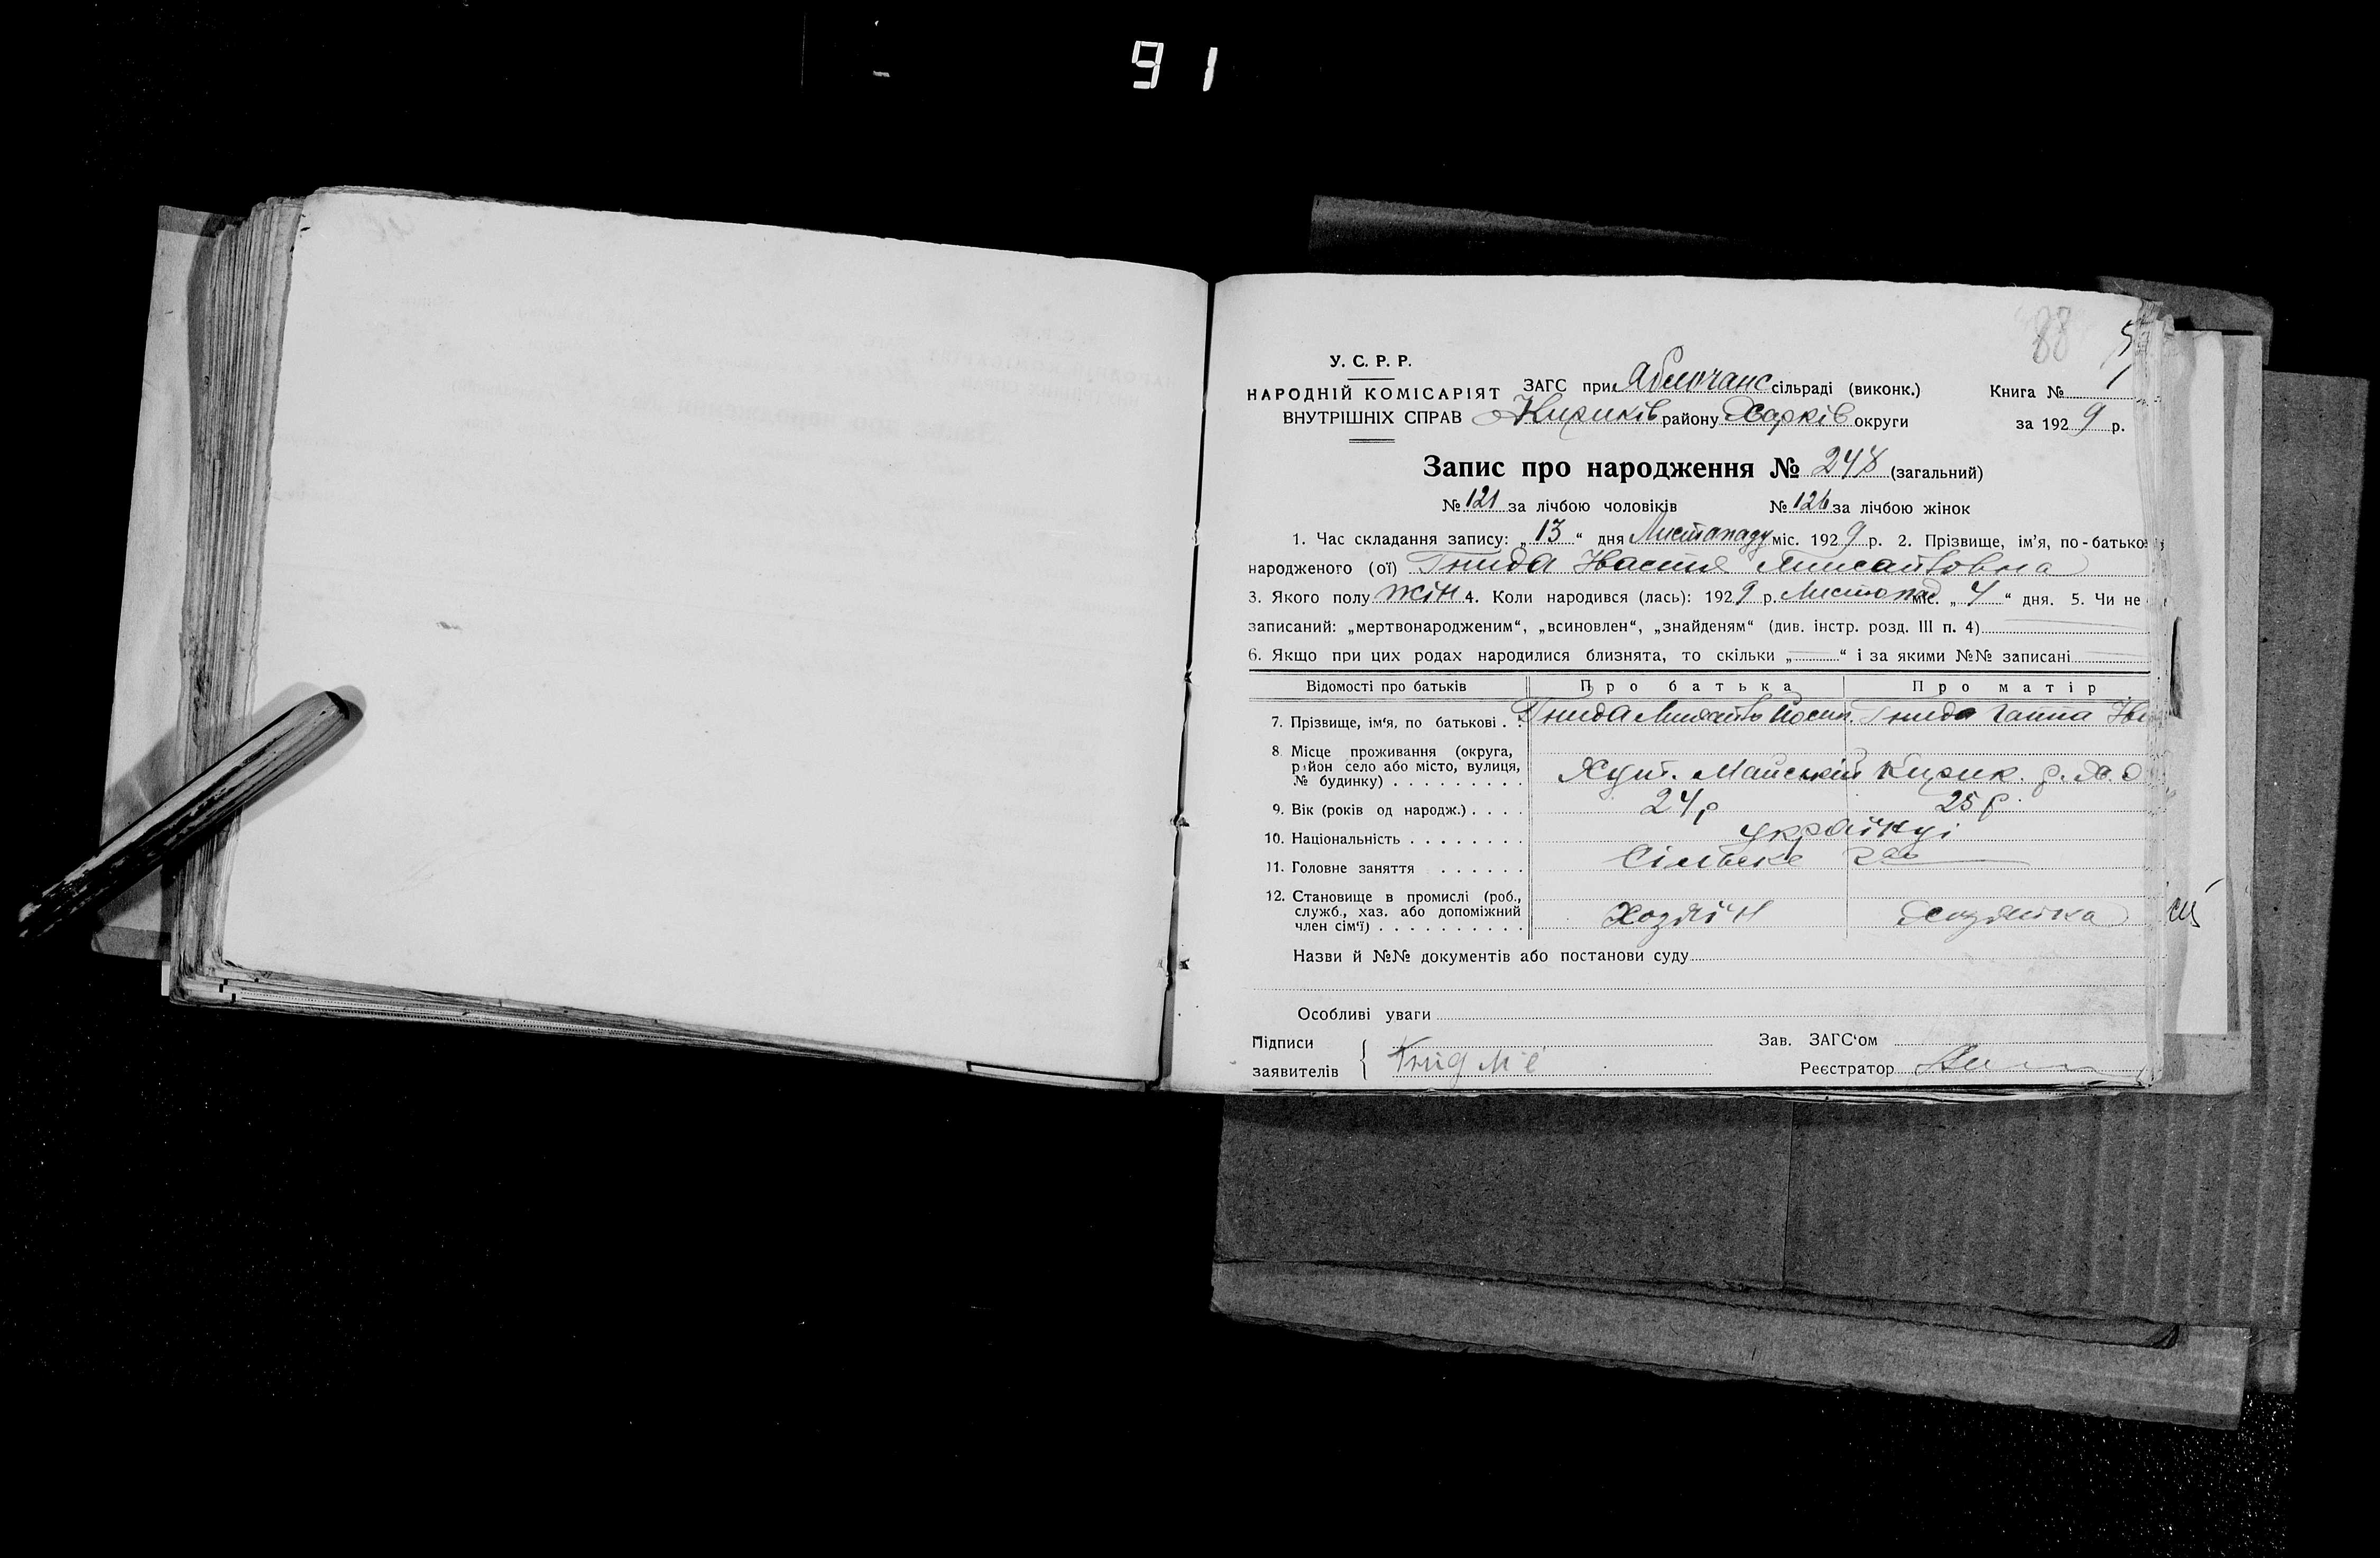 91
88
У. С. Р. Р.
НАРОДНІЙ КОМІСАРІЯТ
ВНУТРІШНІХ СПРАВ
ЗАГС при Яблочанс сільраді (виконк.)
Кириків району Харків округи
Книга № 1
за 1929 р.
Запис про народження № 248 (загальний)
№ 121 за лічбою чоловіків № 126 за лічбою жінок
1. Час складання запису: „13“ дня Листопаду міс. 1929 р. 2. Прізвище, ім'я, по-батьков
народженого (ої) Гнида Настя Михайловна
3. Якого полу жін 4. Коли народився (лась): 1929 р. Листопад міс. „4“ дня. 5. Чи не
записаний: „мертвонародженим“, „всиновлен“, „знайденям“ (див. інстр. розд. III п. 4)
6. Якщо при цих родах народилися близнята, то скільки „ “ і за якими №№ записані
Відомості про батьків Про батька Про матір
7. Прізвище, ім'я, по батькові . . Гнида Михайло Йосип. Гнида Ганна
8. Місце проживання (округа,
район село або місто, вулиця,
№ будинку) . . . . . . . . . Хут. Майський Кирик. р. Х. О
9. Вік (років од народж.) . . . . 24 р 25 р.
10. Національність . . . . . . . . українці
11. Головне заняття . . . . . . Сільське
12. Становище в промислі (роб.,
служб., хаз. або допоміжний
член сім'ї) . . . . . . . . . . Хозяїн Хозяйка
Назви й №№ документів або постанови суду
Особливі уваги
Підписи
заявителів { Гнид М Є
Зав. ЗАГС'ом
Реєстратор